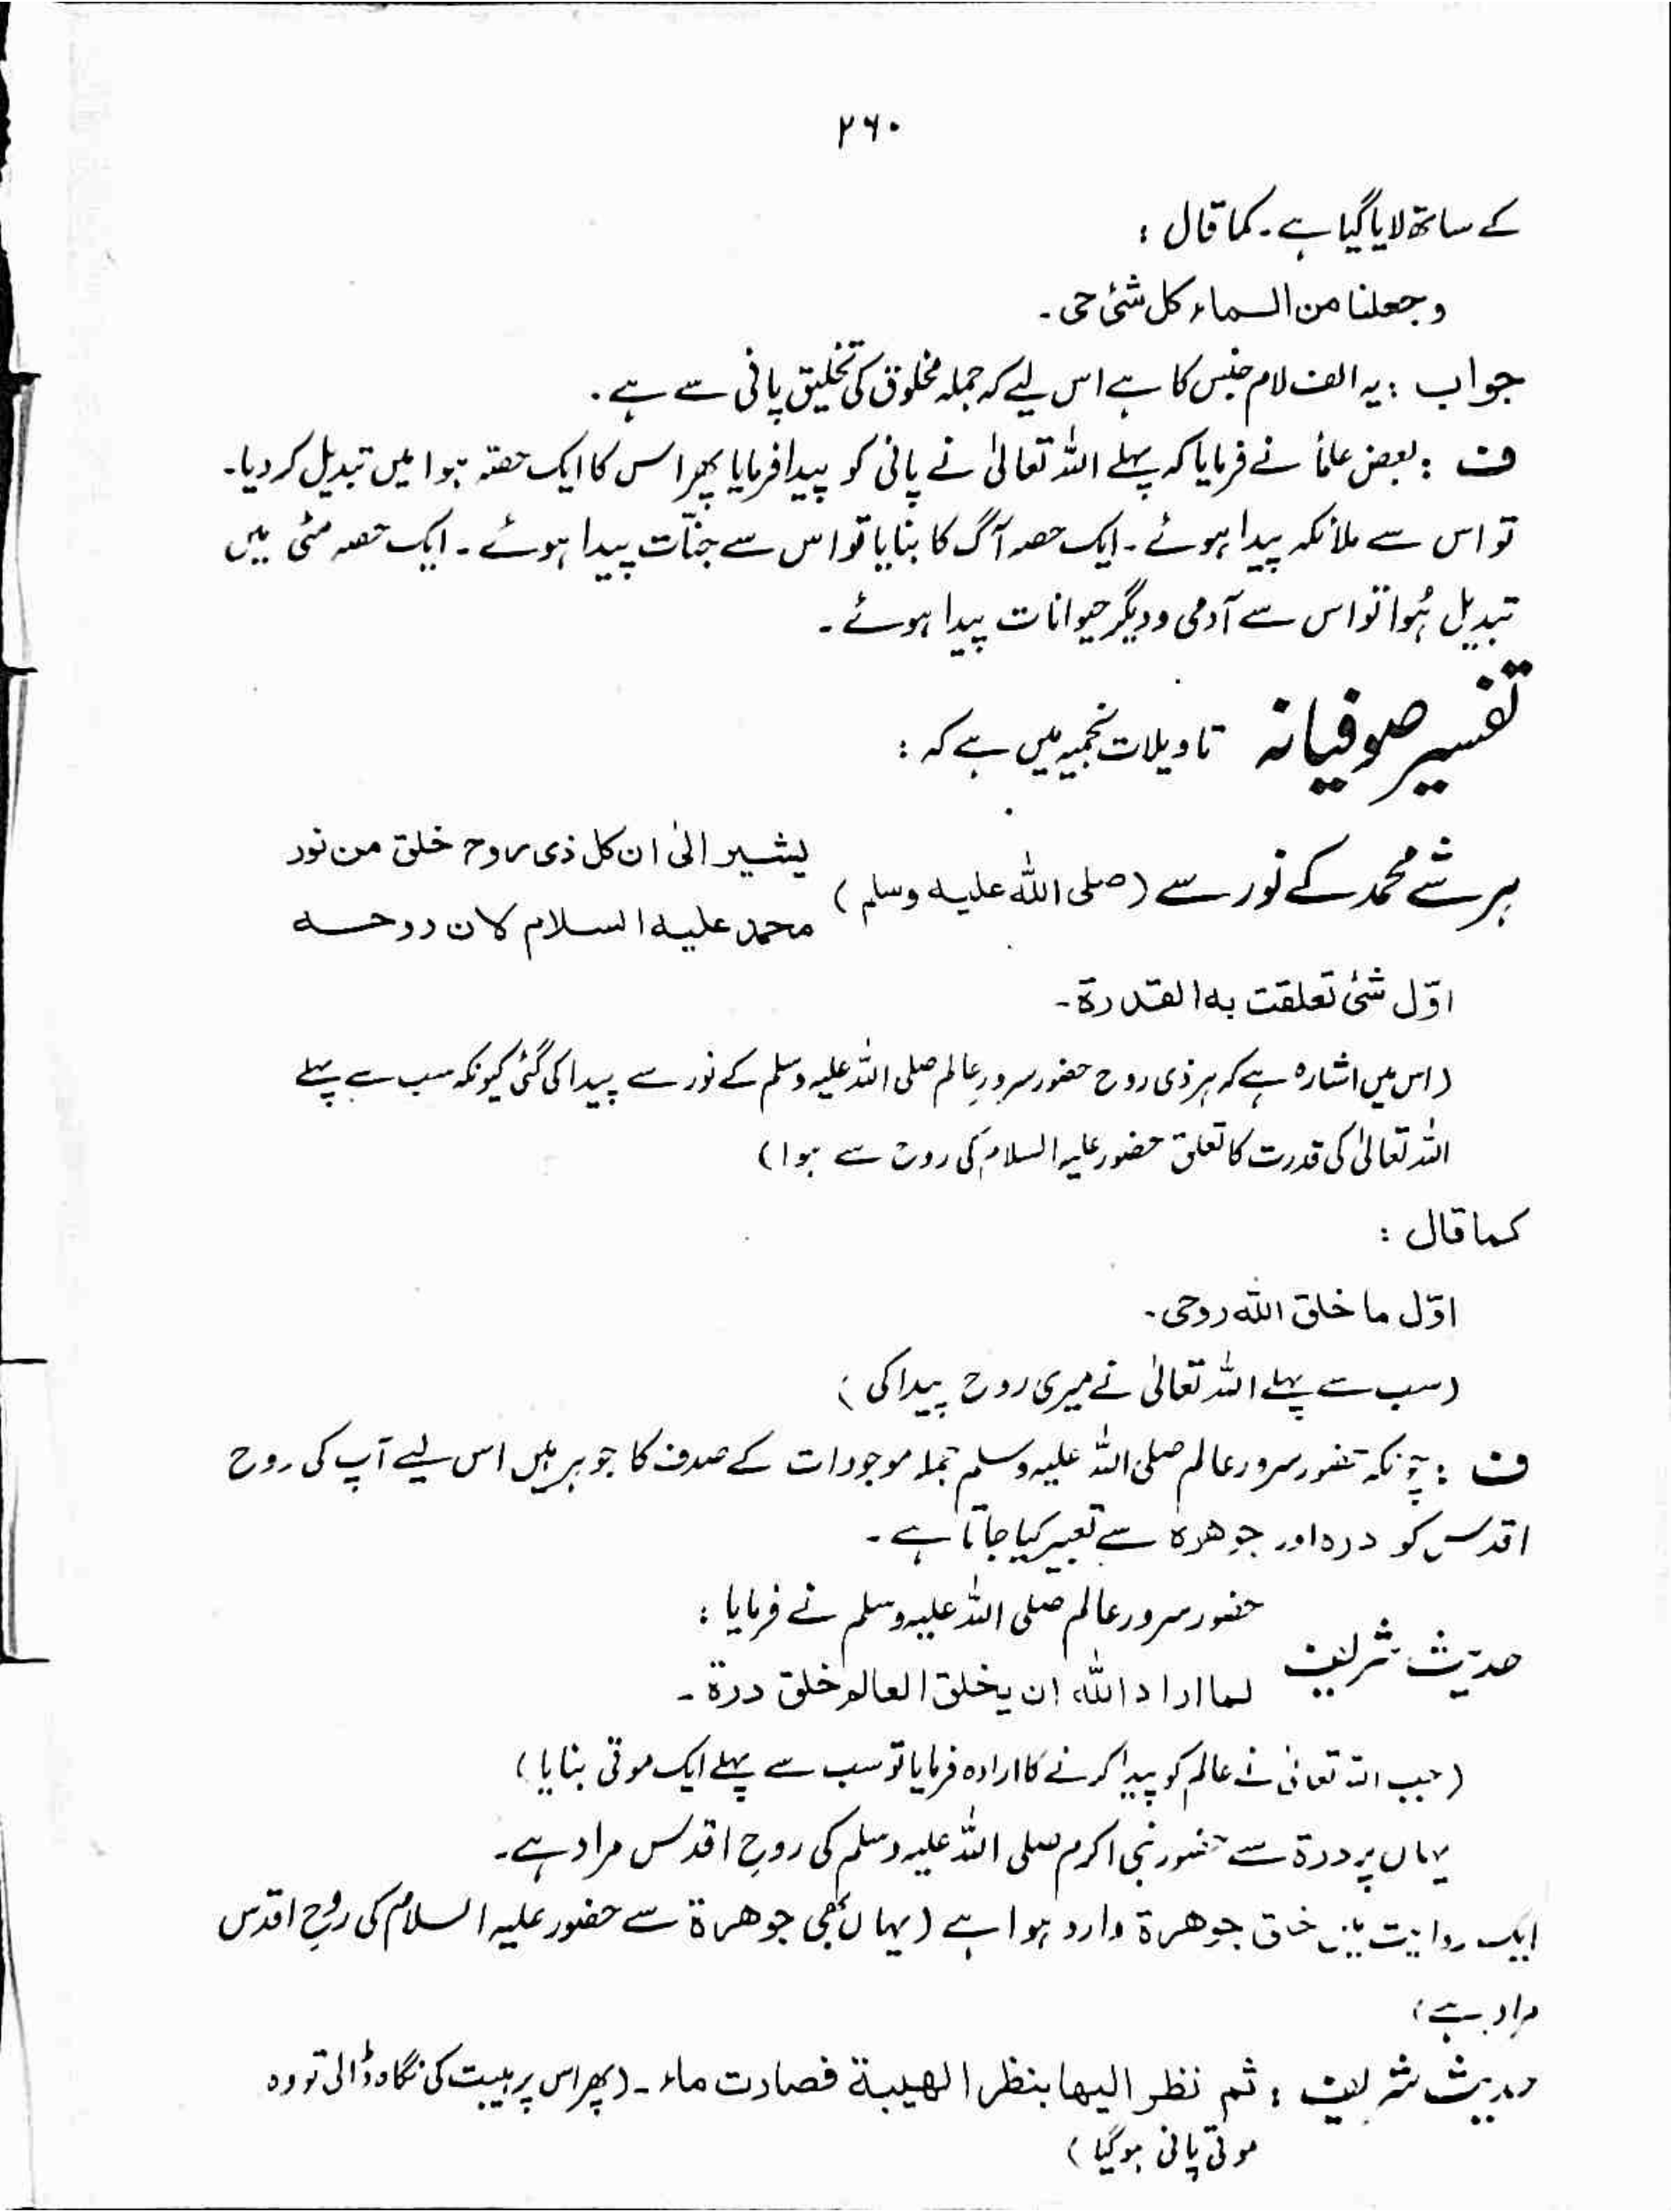 ۲۶۰
کے ساتھ لایا گیا ہے۔ کما قال :
وجعلنا من السماء کل شئ حی۔
جواب : یہ الف لام جنس کا ہے اس لیے کہ جملہ مخلوق کی تخلیق پانی سے ہے۔
ف : بعض علماء نے فرمایا کہ پہلے اللہ تعالیٰ نے پانی کو پیدا فرمایا پھر اس کا ایک حصّہ ہوا میں تبدیل کر دیا۔
تو اس سے ملائکہ پیدا ہوئے۔ ایک حصہ آگ کا بنایا تو اس سے جنّات پیدا ہوئے۔ ایک حصہ مٹی میں
تبدیل ہُوا تو اس سے آدمی و دیگر حیوانات پیدا ہوئے۔
تفسیر صوفیانہ تاویلات نجمیہ میں ہے کہ :
ہر شے محمد کے نور سے (صلی اللہ علیہ وسلم) یشیر الیٰ ان کل ذی روح خلق من نور
محمد علیہ السلام لان روحہ
اوّل شئ تعلقت بہ القدرۃ۔
(اس میں اشارہ ہے کہ ہر ذی روح حضور سرورِ عالم صلی اللہ علیہ وسلم کے نور سے پیدا کی گئی کیونکہ سب سے پہلے
اللہ تعالیٰ کی قدرت کا تعلق حضور علیہ السلام کی روح سے ہوا)
کما قال :
اوّل ما خلق اللہ روحی۔
(سب سے پہلے اللہ تعالیٰ نے میری روح پیدا کی)
ف : چونکہ حضور سرور عالم صلی اللہ علیہ وسلم جملہ موجودات کے صدف کا جوہر ہیں اس لیے آپ کی روح
اقدس کو درہ اور جوھرہ سے تعبیر کیا جاتا ہے۔
حضور سرور عالم صلی اللہ علیہ وسلم نے فرمایا :
حدیث شریف لما اراد اللہ ان یخلق العالم خلق درۃ۔
(جب اللہ تعالیٰ نے عالم کو پیدا کرنے کا ارادہ فرمایا تو سب سے پہلے ایک موتی بنایا)
یہاں پر درۃ سے حضور نبی اکرم صلی اللہ علیہ وسلم کی روحِ اقدس مراد ہے۔
ایک روایت میں خلق جوھرۃ وارد ہوا ہے (یہاں بھی جوھرۃ سے حضور علیہ السلام کی روحِ اقدس
مراد ہے)
حدیث شریف : ثم نظر الیھا بنظر الھیبة فصارت ماء۔ (پھر اس پر ہیبت کی نگاہ ڈالی تو وہ
موتی پانی ہو گیا)